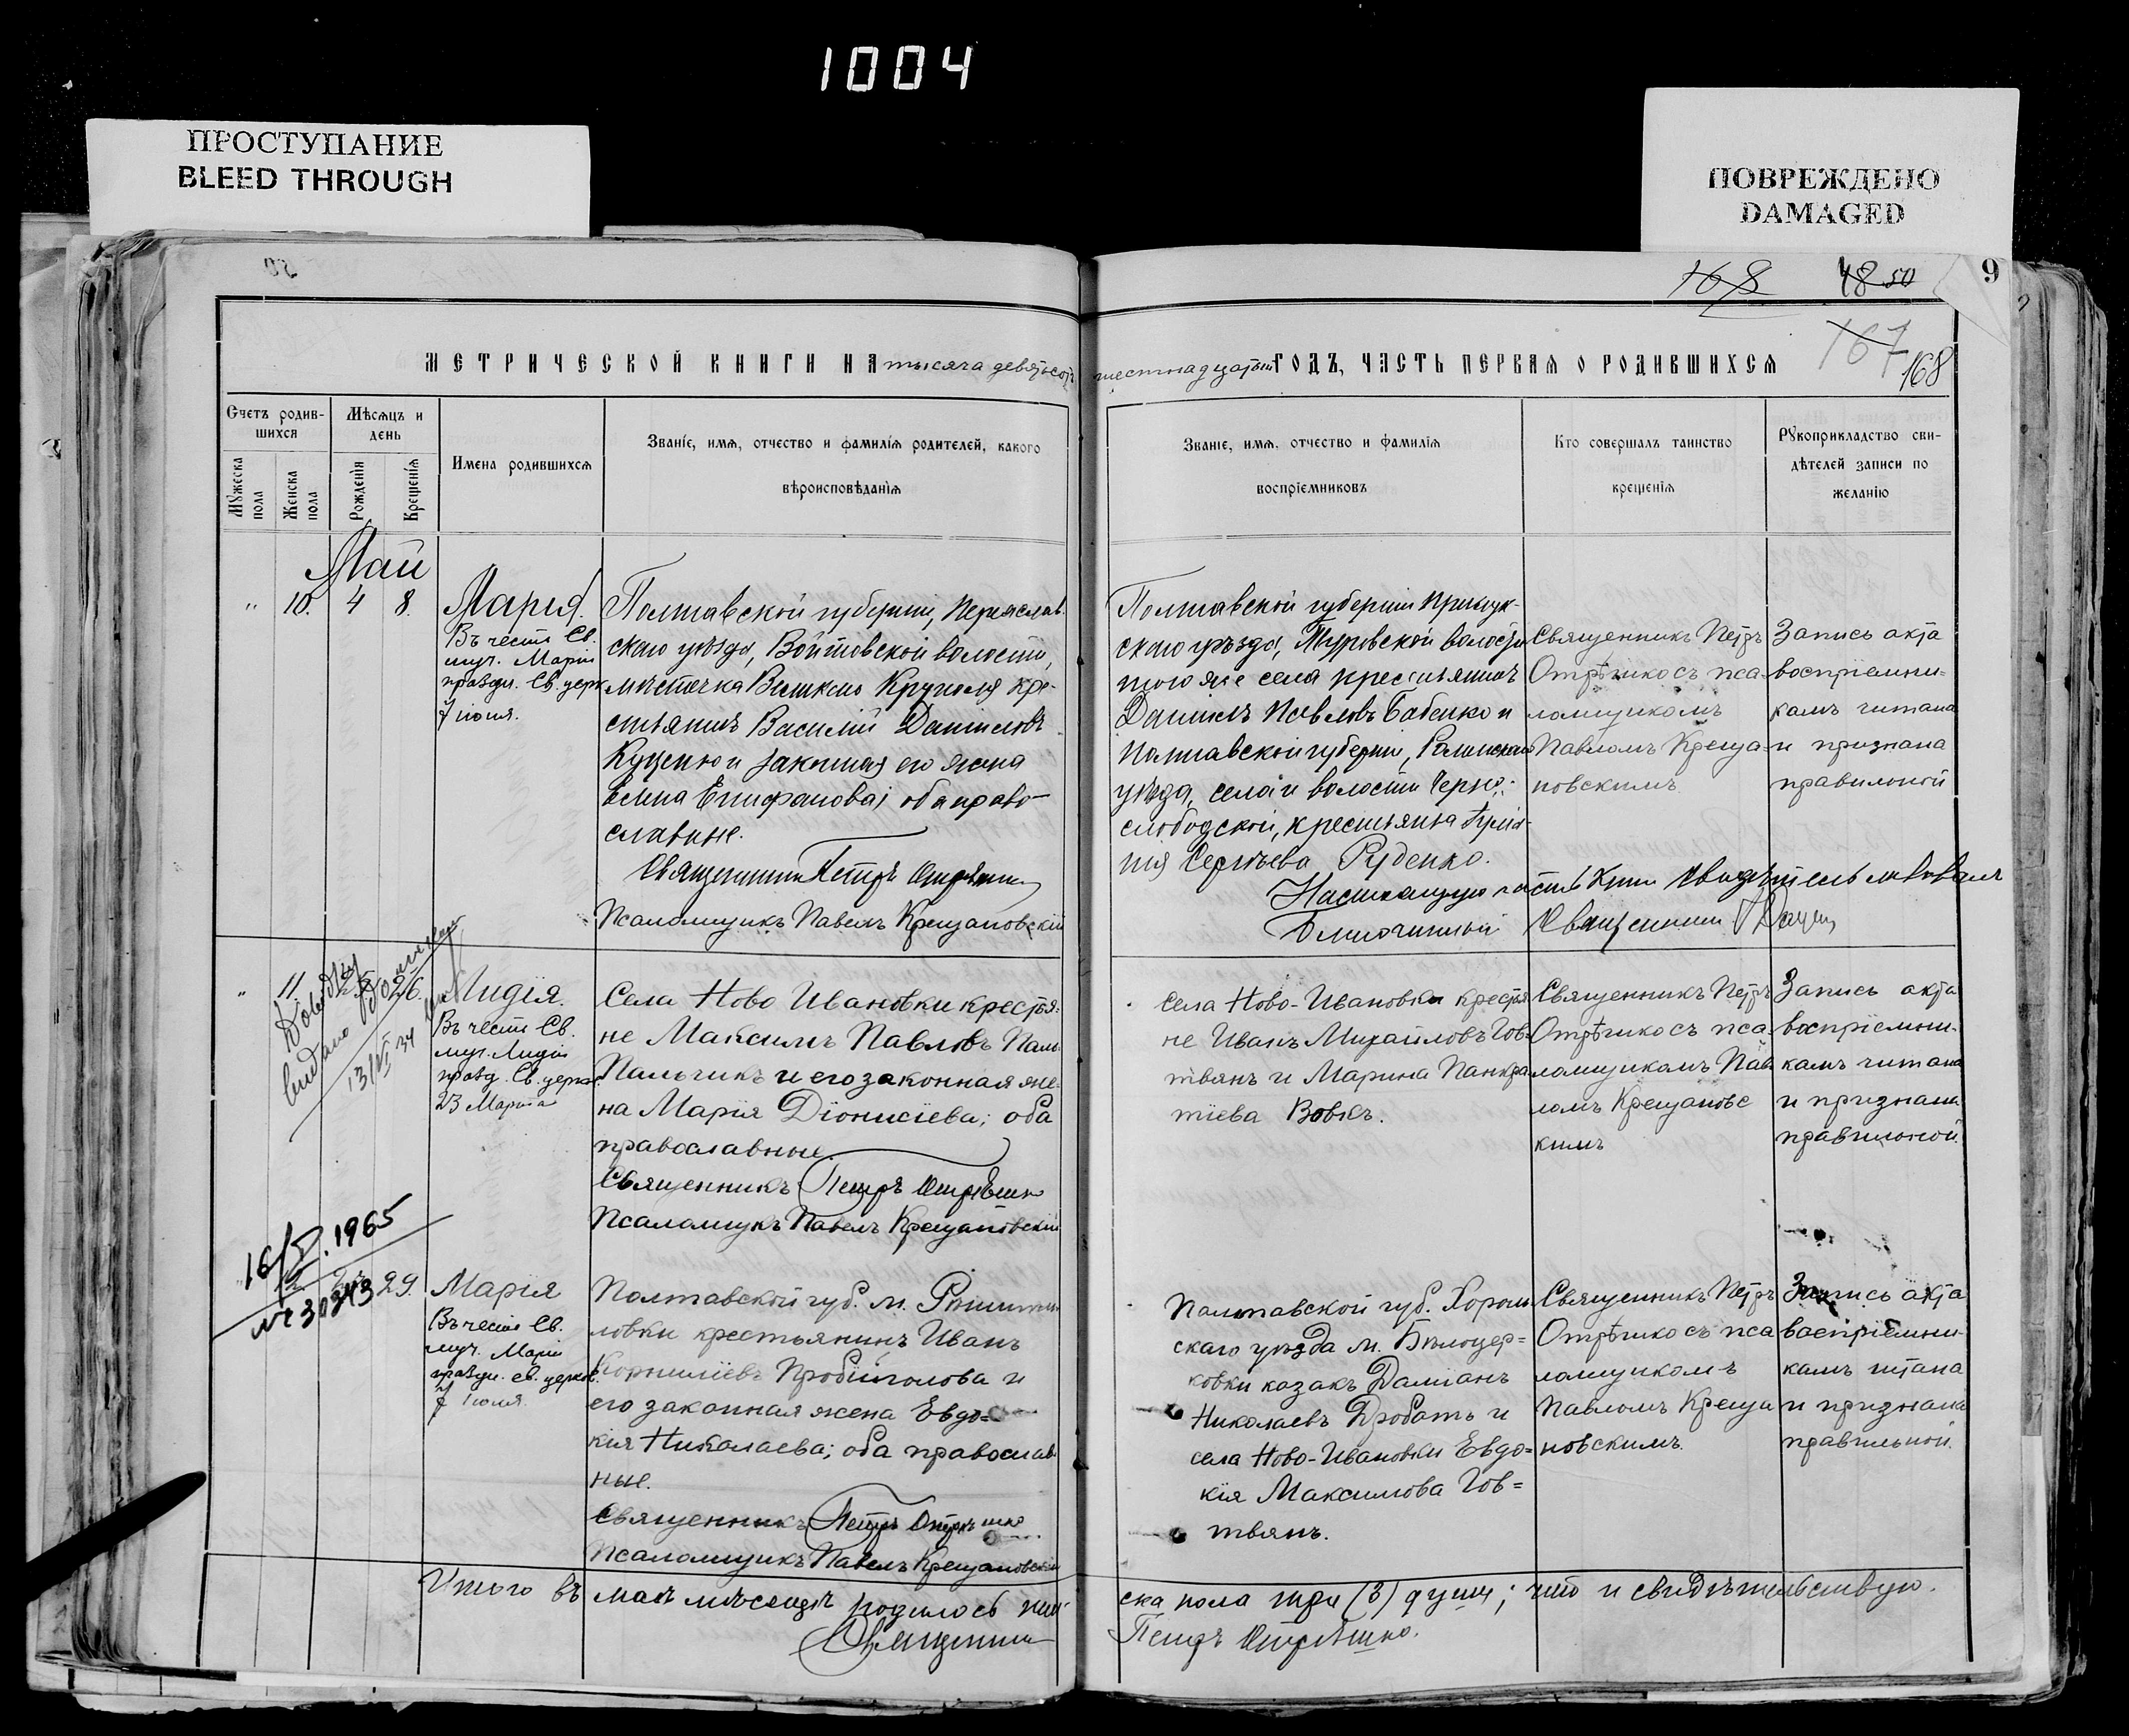 1004
ПРОСТУПАНИЕ
BLEED THROUGH
ПОВРЕЖДЕНО
DAMAGED
168 48 50 9
167
168
МЕТРИЧЕСКОЙ КНИГИ НА тысяча девятьсотъ шестнадцатый ГОДЪ, ЧАСТЬ ПЕРВАЯ О РОДИВШИХСЯ
Счетъ родив-
шихся
Мужеска пола
Женска пола
Мѣсяцъ и
день
Рожденія
Крещенія
Имена родившихся
Званіе, имя, отчество и фамилія родителей, какого
вѣроисповѣданія
Званіе, имя, отчество и фамилія
воспріемниковъ
Кто совершалъ таинство
крещенія
Рукоприкладство сви-
дѣтелей записи по
желанію
Май
" 10. 4 8.
Марія.
Въ честь Св.
муч. Маріи
праздн. Св. церк.
7 іюня.
Полтавской губерніи, Переяслав-
скаго уѣзда, Войтовской волости,
мѣстечка Великаго Круполя кре-
стьянинъ Василій Даніиловъ
Куценко и законная его жена
Елена Епифанова; оба право-
славные.
Священникъ Петръ Отрѣшко
Псаломщикъ Павелъ Крещановскій
Полтавской губерніи Прилук-
скаго уѣзда, Туровской волости
того же села крестьянинъ
Даніилъ Павловъ Бабенко и
Полтавской губерніи, Роменскаго
уѣзда, села и волости Черно-
слободской, крестьянка
Сергѣева Руденко.
Священникъ Петръ
Отрѣшко съ пса-
ломщикомъ
Павломъ Креща-
новскимъ
Запись акта
воспріемни-
камъ читана
и признана
правильной
Настоящую часть книги свидѣтельствовалъ
Благочинный Священникъ
" 11. 26.
Лидія.
Въ честь Св.
муч. Лидіи
празд. Св. церков.
23 Марта
13/VI 34
Села Ново Ивановки крестья-
не Максимъ Павловъ
Пальчикъ и его законная же-
на Марія Діонисіева; оба
православные.
Священникъ Петръ Отрѣшко
Псаломщикъ Павелъ Крещановскій
Села Ново-Ивановки крестья-
не Иванъ Михайловъ Гов-
твянъ и Марина Панкра-
тіева Вовкъ.
Священникъ Петръ
Отрѣшко съ пса-
ломщикомъ Пав-
ломъ Крещановс
кимъ
Запись акта
воспріемни-
камъ читана
и признана
правильной
16/V.1965
№ 30343
29.
Марія
Въ честь Св.
муч. Маріи
праздн. св. церков.
7 іюня.
Полтавской губ. м.
ловки крестьянинъ Иванъ
Корниліевъ Пробійголова и
его законная жена Евдо=
кія Николаева; оба православ-
ные.
Священникъ Петръ Отрѣшко
Псаломщикъ Павелъ Крещановскій
Полтавской губ. Хороль
скаго уѣзда м. Бѣлоцер=
ковки козакъ Даміанъ
Николаевъ Дробать и
села Ново-Ивановки Евдо=
кія Максимова Гов=
твянъ.
Священникъ Петръ
Отрѣшко съ пса
ломщикомъ
Павломъ Креща
новскимъ.
Запись акта
воспріемни-
камъ читана
и признана
правильной.
Итого въ маѣ мѣсяцѣ родилось жен-
ска пола три (3) души; что и свидѣтельствую.
Священникъ
Петръ Отрѣшко.